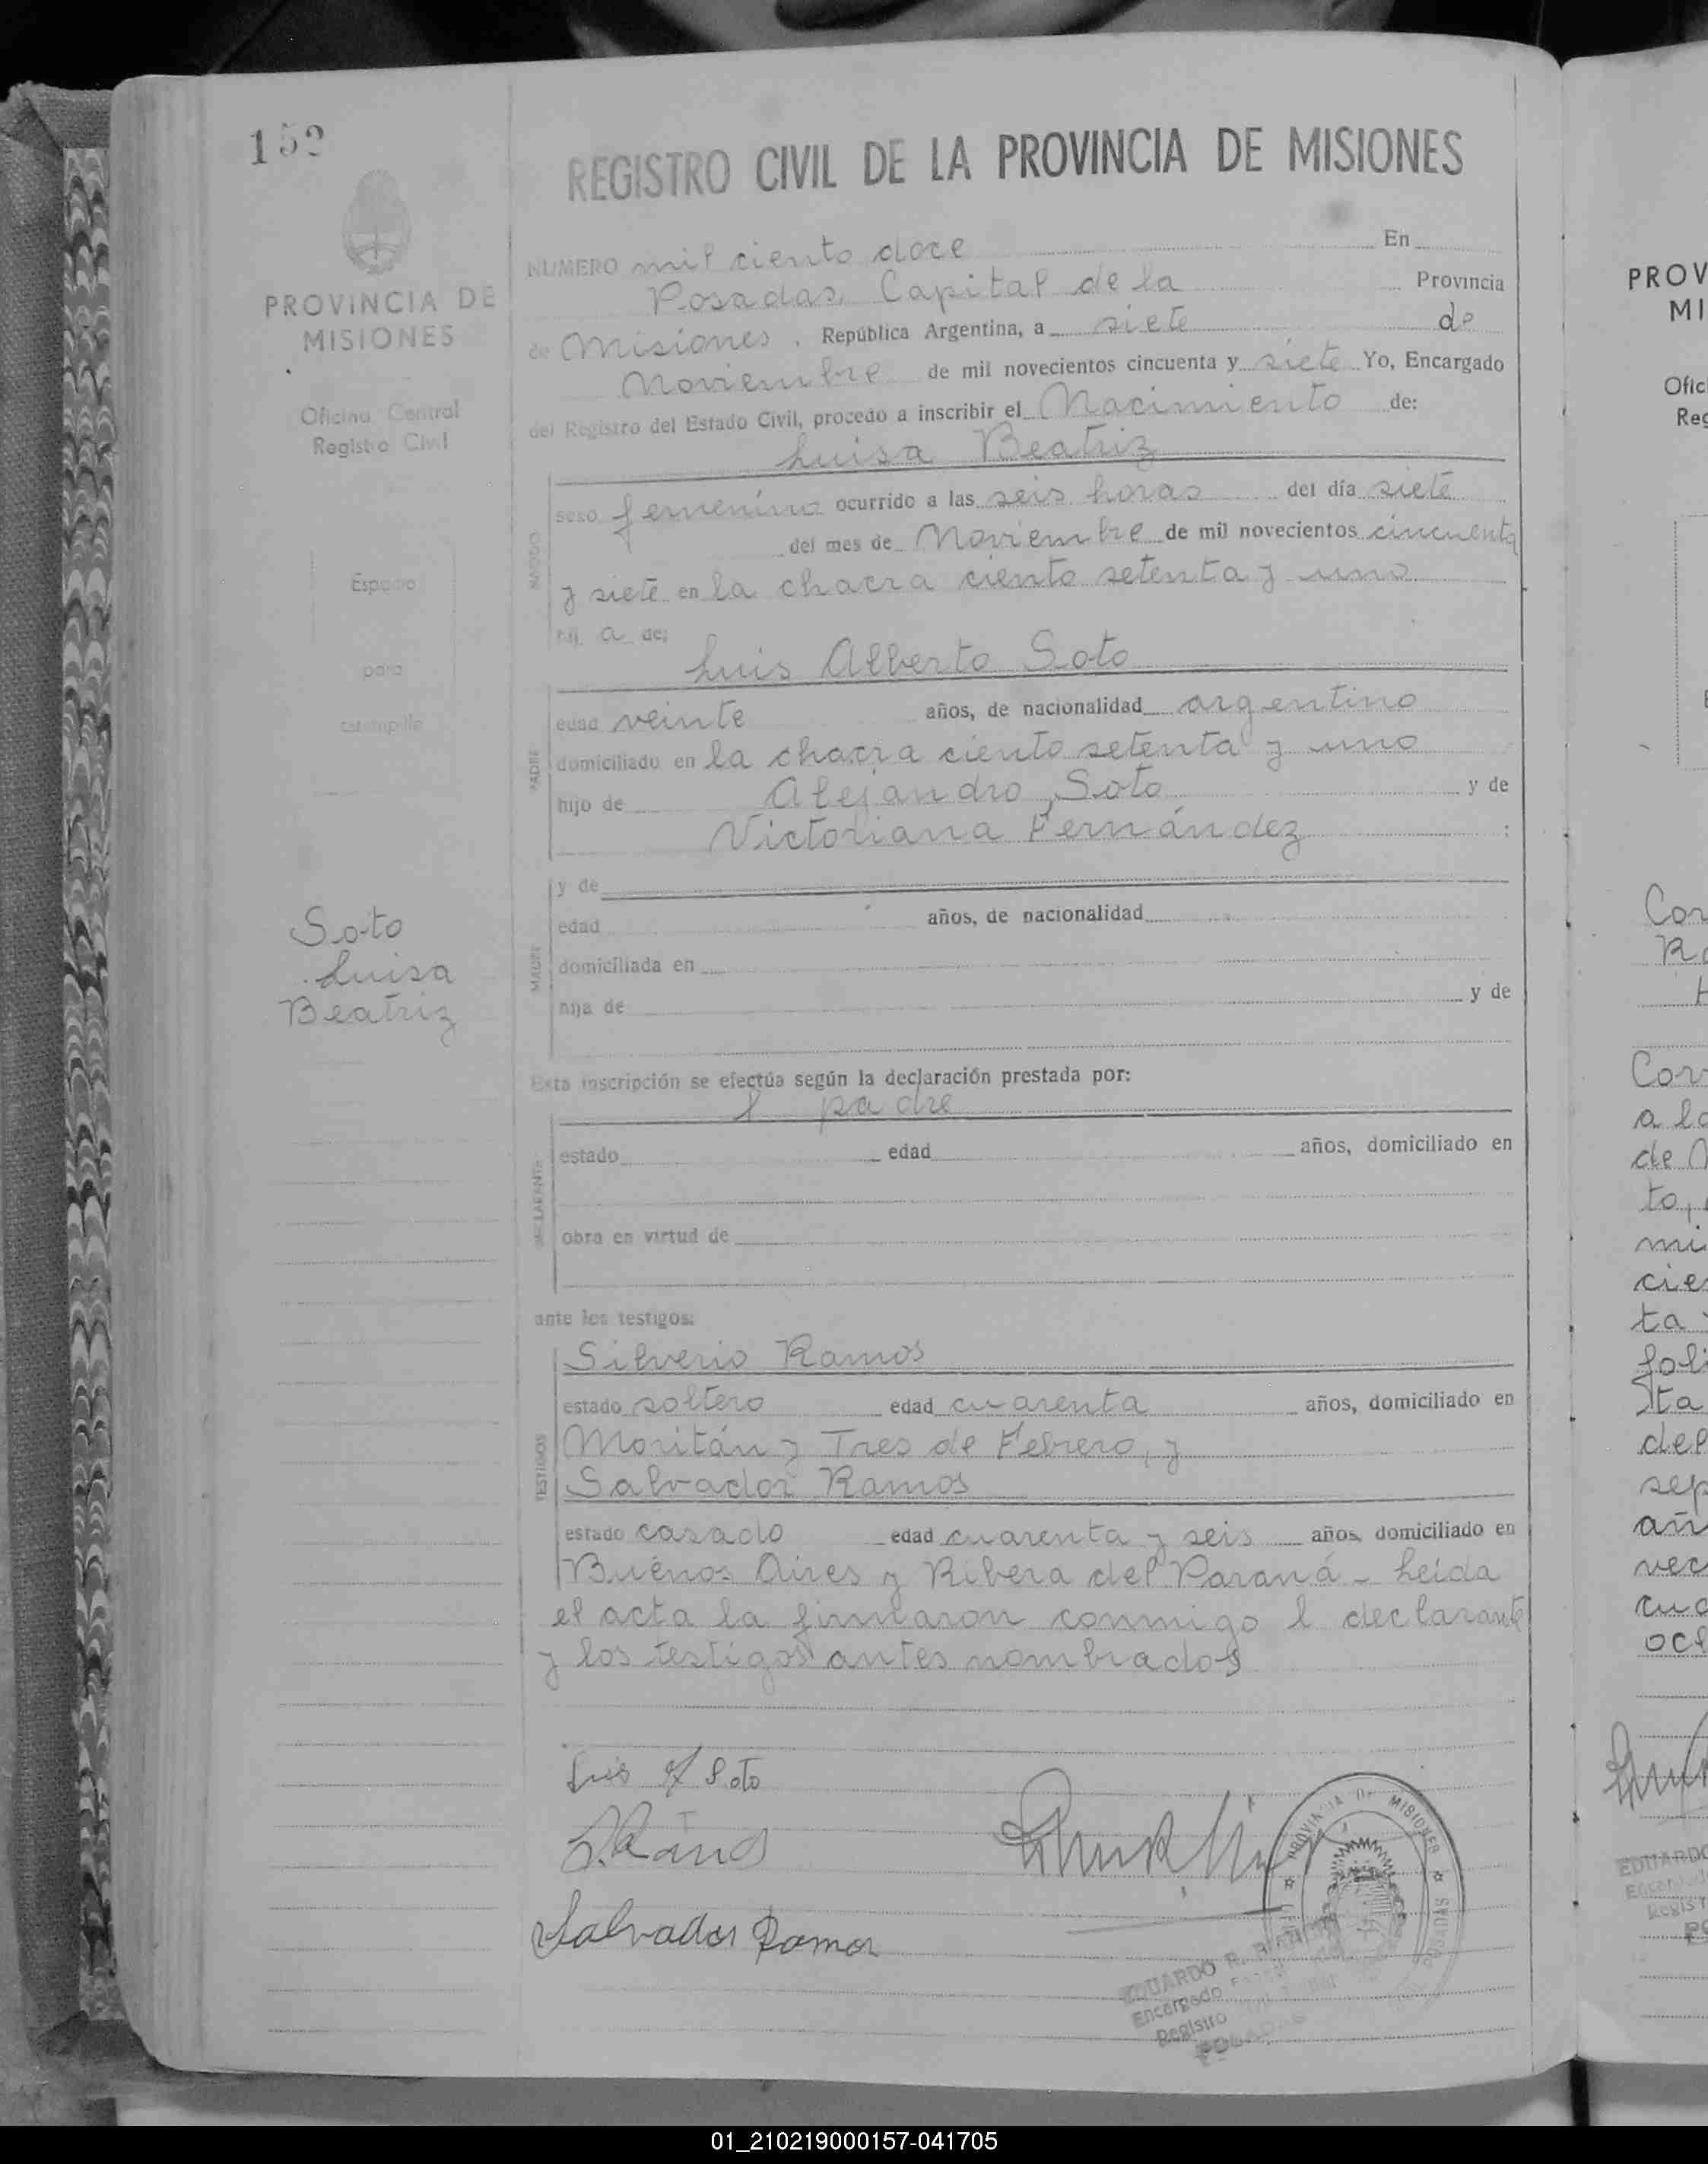 152
REGISTRO CIVIL DE LA PROVINCIA DE MISIONES
PROVINCIA DE
MISIONES
Oficina Central
Registro Civil
Espacio
para
estampilla
Soto
Luisa
Beatriz
NUMERO mil ciento doce En
Posadas, Capital de la Provincia
de Misiones, República Argentina, a siete de
Noviembre de mil novecientos cincuenta y siete Yo, Encargado
del Registro del Estado Civil, procedo a inscribir el Nacimiento de:
Luisa Beatriz
NACIDO
sexo femenino ocurrido a las seis horas del día siete
del mes de Noviembre de mil novecientos cincuenta
y siete en la chacra ciento setenta y uno
hij a de:
Luis Alberto Soto
PADRE
edad veinte años, de nacionalidad argentino
domiciliado en la chacra ciento setenta y uno
hijo de Alejandro Soto y de
Victoriana Fernández :
y de
MADRE
edad años, de nacionalidad
domiciliada en
hija de y de
Esta inscripción se efectúa según la declaración prestada por:
l padre
DECLARANTE
estado edad años, domiciliado en
obra en virtud de
ante los testigos:
TESTIGOS
Silverio Ramos
estado soltero edad cuarenta años, domiciliado en
Moritán y Tres de Febrero, y
Salvador Ramos
estado casado edad cuarenta y seis años, domiciliado en
Buenos Aires y Ribera del Paraná - Leida
el acta la firmaron conmigo l declarante
y los testigos antes nombrados
Luis A Soto
S. Ramos
Salvador Ramos
PROVINCIA DE MISIONES
EDUARDO R.
Encargado
Registro
POSADAS
PROV
MI
Ofic
Reg
Cor
a la
de N
to,
mi
cie
ta
foli
ta
del
sep
añ
vec
cua
och
EDUARDO
Encargado
Regist
PO
01_210219000157-041705